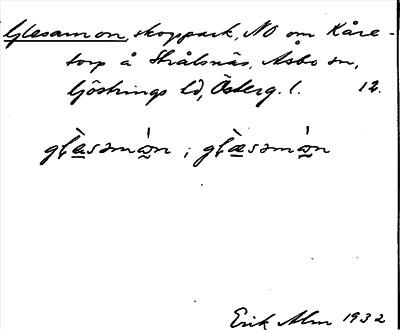 Glesamon, skogspark, NO om Kåre-
torp å Strålsnäs, Åsbo sn,
Göstrings hd, Österg. l. 12.
gl̀a̲səmán ; gl̀æ̲səmán
Erik Alm 1932